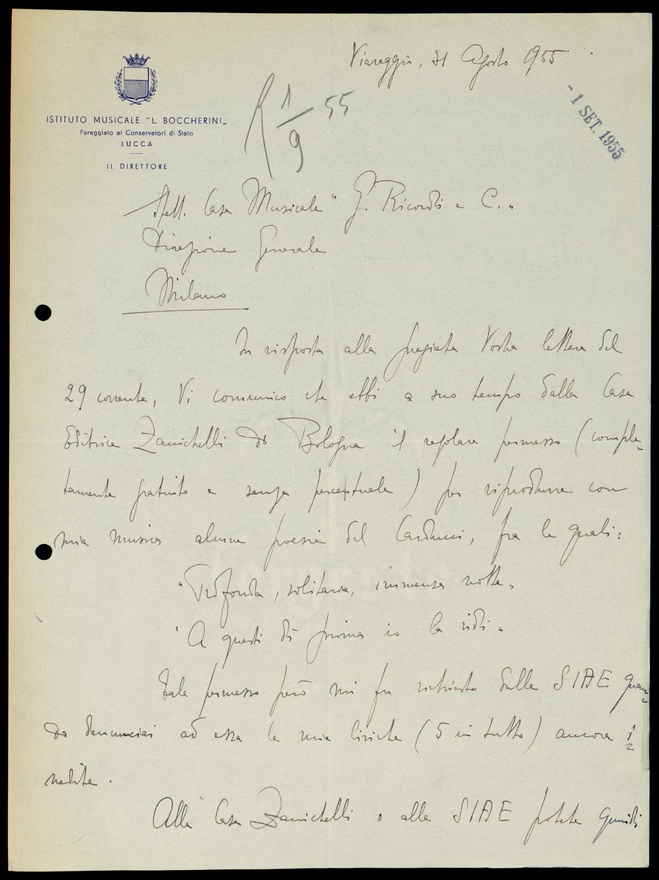 Viareggio, 31 Agosto 1955
- 1 SET. 1955
R 1/9 55
ISTITUTO MUSICALE "L. BOCCHERINI"
Pareggiato ai Conservatori di Stato
LUCCA
IL DIRETTORE
Spett. Casa Musicale "G. Ricordi e C."
Direzione Generale
Milano
In risposta alla pregiata Vostra lettera del
29 corrente, Vi comunico che ebbi a suo tempo dalla Casa
Editrice Zanichelli di Bologna il regolare permesso (comple-
tamente gratuito e senza percentuale) per riprodurre con
mia musica alcune poesie del Carducci, fra le quali:
"Profonda, solitaria, immensa notte"
"A questi dì prima io la vidi"
Tale permesso però mi fu richiesto dalla SIAE quan=
do denunciai ad essa le mie liriche (5 in tutto) ancora i=
nedite.
Alla Casa Zanichelli o alla SIAE potete quindi